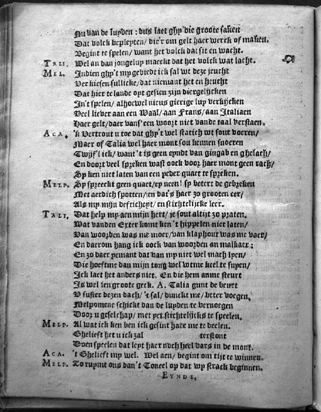 Nu van de luyden: dus laet ghy die groote sanen
Dat volck bepleyten/ die'r om gelt haer werck of maken.
Begint te spelen/ want het volck dat sit en wacht.
TALI. Wel an dan jongelup maeckt dat het volck wat lacht.
MEL. Indien ghy't my gebiedt ick sal we deze jeucht
Verkiesen sulcke, dat niemant het en heucht
Dat hier te lande oyt gesien zijn diergelijcken
In't spelen/ alhoewel nieus gierige luy verkijcken
Veel liever aen een Waal/ aan Frans/ aan Italiaen
Haer gelt/ daer vansz' een woort niet vande taal verstaen.
ACA. 'k Vertrout u toe dat ghy't wel statich wt sout voeren/
Maer of Talia wel haer mont sou kennen snoeren
Twijf'l ick/ want't is geen eynde van gingab en gheslach/
En door veel spreken wast oock door haer mont geen rach/
Sy ken niet laten van een yeder quaet te spreken.
MELP. Sy spreeckt geen quaet/ sy neen! sy betert de gebreken
Met aerdich spotten/ en dat's haer zo grooten eer/
Als my mijn defticheyt/ en stichtelijcke leer.
TALI. Dat help my aen mijn hert/ je sout altijt zo praten,
Wat vanden Exter komt ken 't hippelen niet laten/
Van woorden was me moer/ van klaphout was me vaer/
En daerom hang ick oock van woorden an malkaer;
En zo daer yemant dat van my niet wel mach lyen/
Die hoeftme dan mijn tong wel ieens kiel te snyen/
Ick laet het anders niet. En die hem anme steurt
Is wel ien groote geck. A. Talia gunt de beurt
V suster dezen dach/ 't sal/ dunckt me/ beter voegen,
Melpomene schickt dan de luyden te vernoegen
Door u geselschap/ met yet stichtelijcks te speelen.
MELP. Al wat ick ken ben ick gesint haer me te deelen.
Ghelieft het u ick zal terstont
Doen spelen dat leyt haer noch heel vars in de mont.
ACA. 't Ghelieft my wel. Wel aen/ begint om tijt te winnen.
MELP. Zo rupmt ons dan't Toneel op dat wy strack beginnen.
EYNDE.